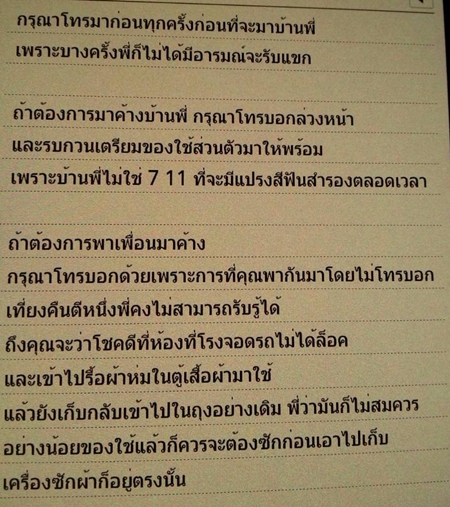 กรุณาโทรมาก่อนทุกครั้งก่อนที่จะมาบ้านพี่
เพราะบางครั้งพี่ก็ไม่ได้มีอารมณ์จะรับแขก
ถ้าต้องการมาค้างบ้านพี่ กรุณาโทรบอกล่วงหน้า
และรบกวนเตรียมของใช้ส่วนตัวมาให้พร้อม
เพราะบ้านพี่ไม่ใช่ 7 11 ที่จะมีแปรงสีฟันสำรองตลอดเวลา
ถ้าต้องการพาเพื่อนมาค้าง
กรุณาโทรบอกด้วยเพราะการที่คุณพากันมาโดยไม่โทรบอก
เที่ยงคืนตีหนึ่งพี่คงไม่สามารถรับรู้ได้
ถึงคุณจะว่าโชคดีที่ห้องที่โรงจอดรถไม่ได้ล็อค
และเข้าไปรื้อผ้าห่มในตู้เสื้อผ้ามาใช้
แล้วยังเก็บกลับเข้าไปในถุงอย่างเดิม พี่วามันก็ไม่สมควร
อย่างน้อยของใช้แล้วก็ควรจะต้องซักก่อนเอาไปเก็บ
เครื่องซักผ้าก็อยู่ตรงนั้น